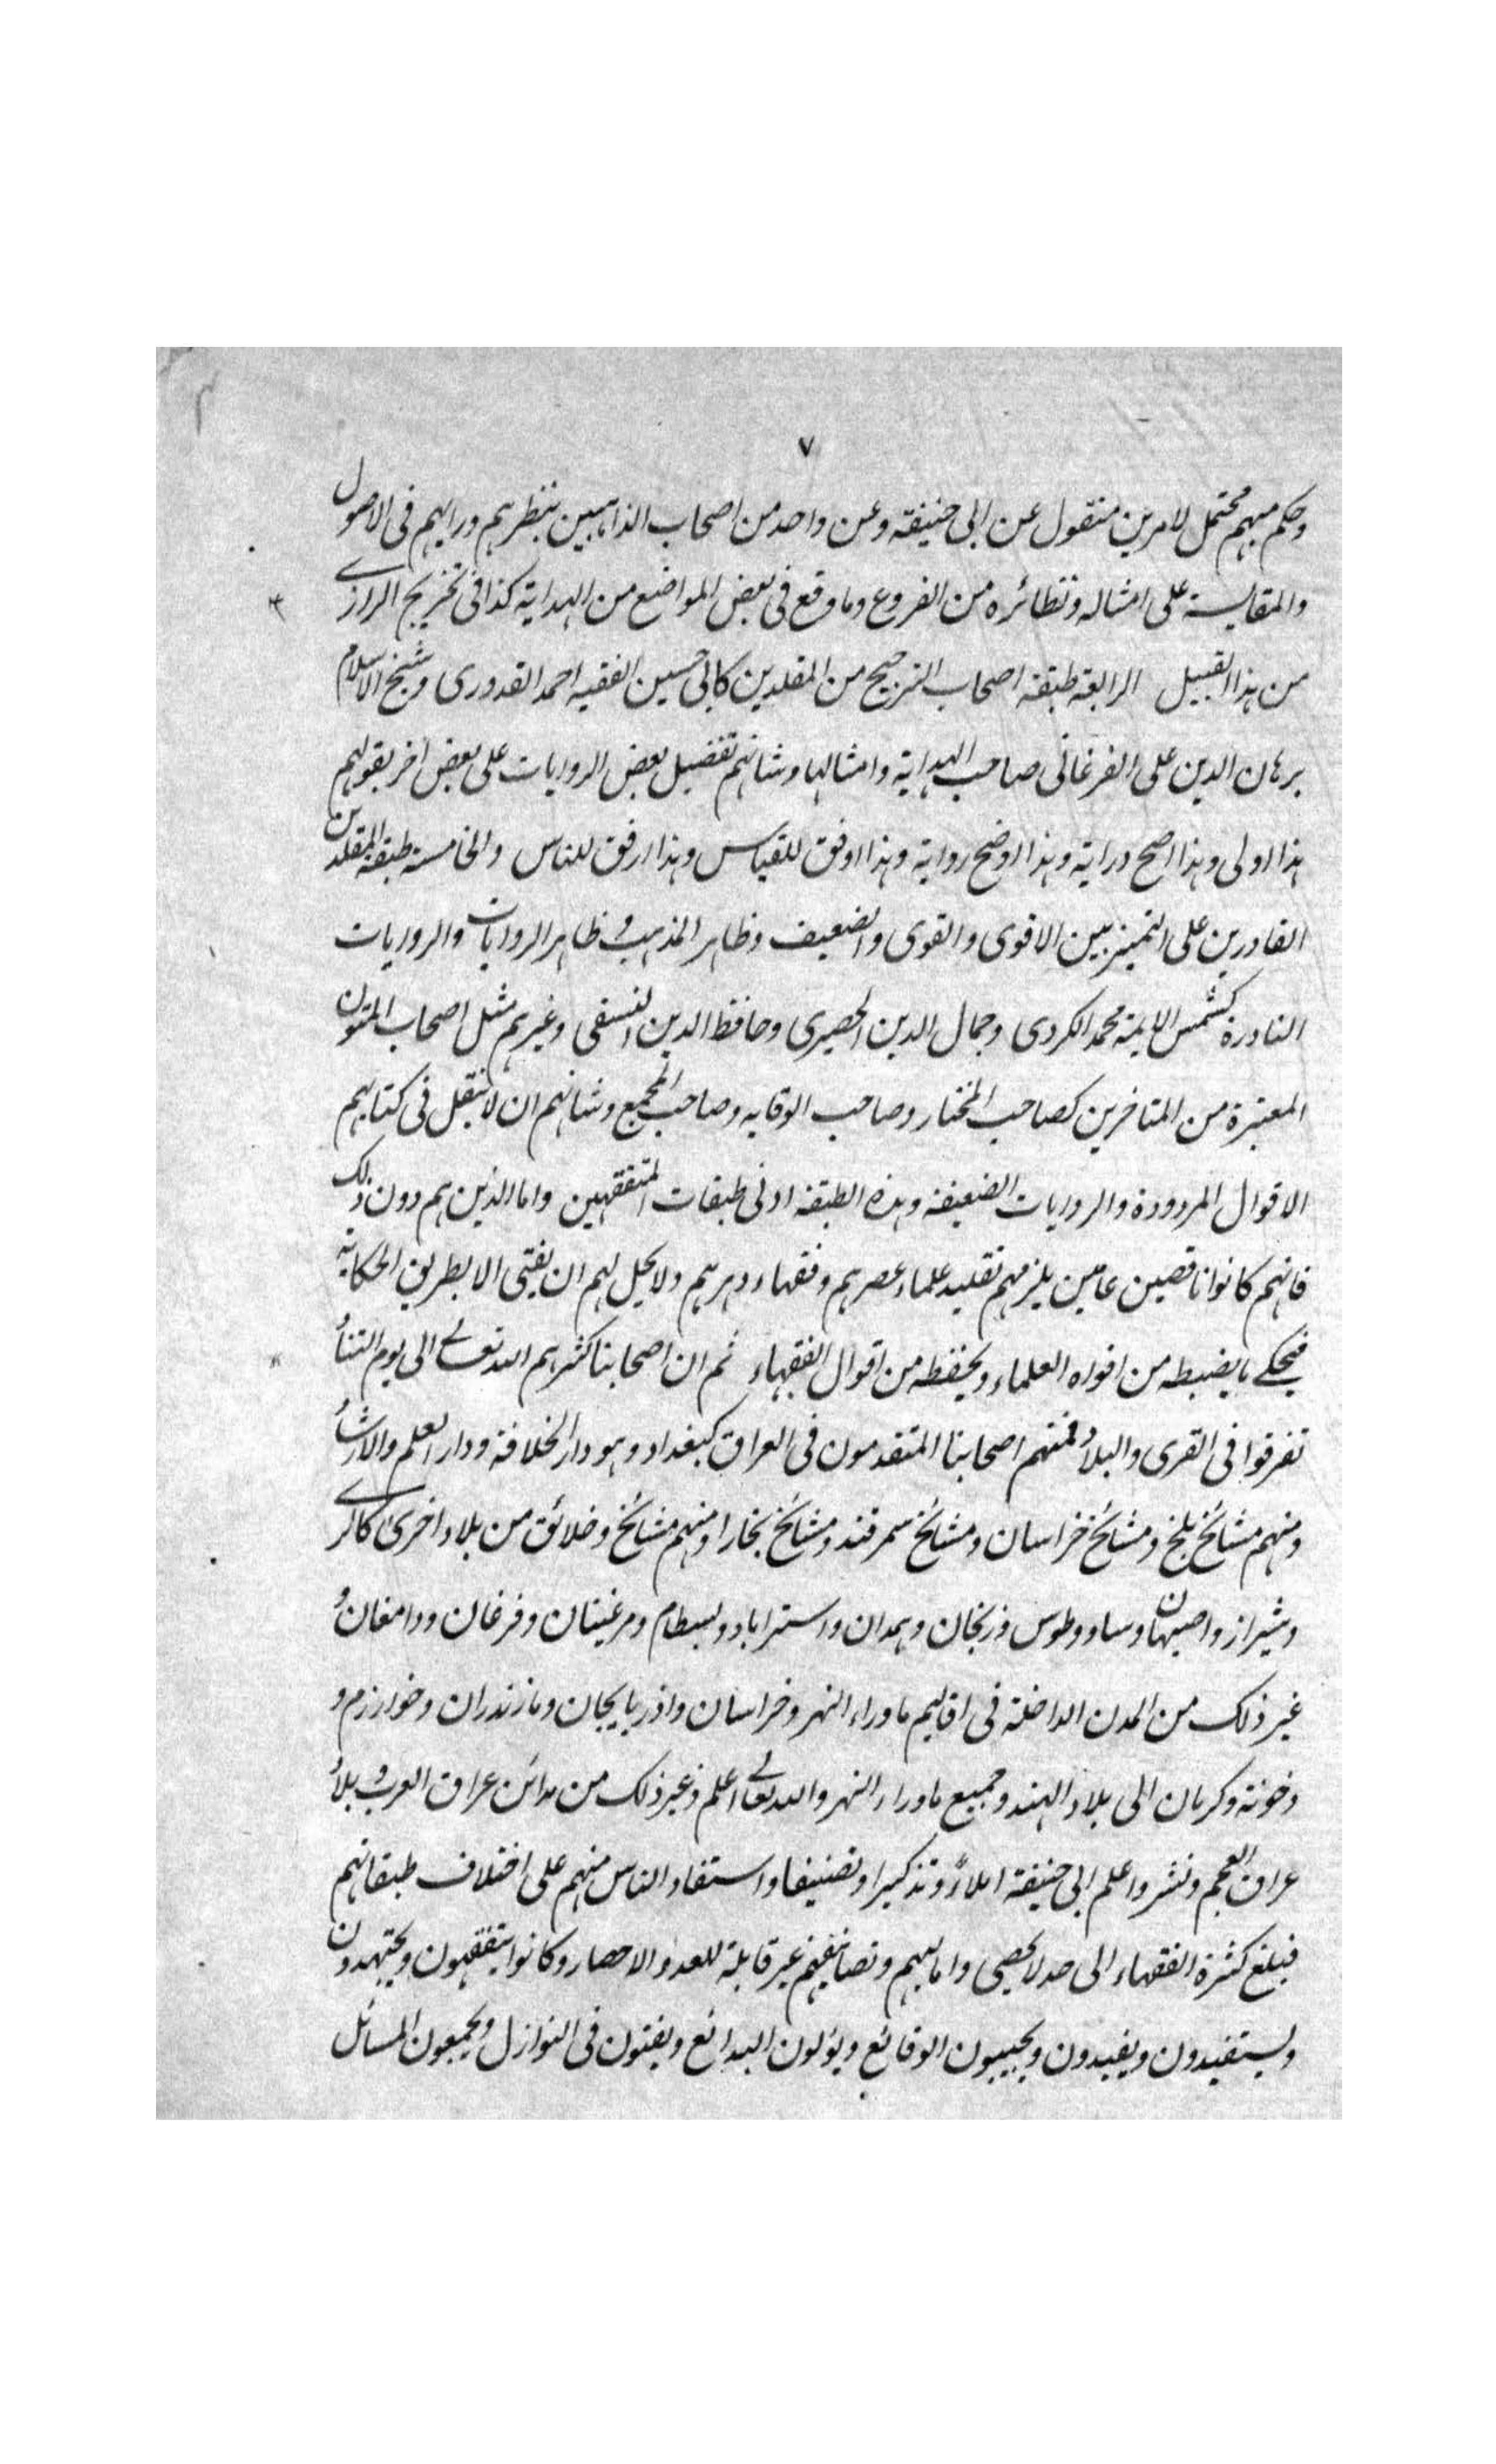 ٧
وحكم مبهم محتمل لامرين منقول عن ابى حنيفة وعن واحد من اصحاب الذاهبين بنظرهم ورايهم فى الاصول
والمقايسة على امثاله ونظائره من الفروع وما وقع فى بعض المواضع من الهداية كذا فى تخريج الرازى
من هذا القبيل الرابعة طبقة اصحاب الترجيح من المقلدين كابى حسين الفقيه احمد القدورى وشيخ الاسلام
برهان الدين على الفرغانى صاحب الهداية وامثالها وشانهم تفضيل بعض الروايات على بعض اخر بقولهم
هذا اولى وهذا اصح دراية وهذا اوضح رواية وهذا اوفق للقياس وهذا ارفق للناس والخامسة طبقة المقلدين
القادرين على التميز بين الاقوى والقوى والضعيف وظاهر المذهب و ظاهر الروايات والروايات
النادرة كشمس الايمة محمد الكردى وجمال الدين الحصيرى وحافظ الدين النسفى وغيرهم مثل اصحاب المتون
المعتبرة من المتاخرين كصاحب المختار وصاحب الوقايه وصاحب المجمع وشانهم ان لا ينقل فى كتابهم
الاقوال المردودة والروايات الضعيفة وهذه الطبقة ادنى طبقات المتفقهين واما الذين هم دون ذلك
فانهم كانوا ناقصين عامين يلزمهم تقليد علماء عصرهم وفقهاء دهرهم ولا يحل لهم ان يفتى الا بطريق الحكاية
فيحكى ما يضبطه من افواه العلماء ويحفظه من اقوال الفقهاء ثم ان اصحابنا كثرهم الله تعالى الى يوم التناد
تفرقوا فى القرى والبلاد فمنهم اصحابنا المتقدمون فى العراق كبغداد وهو دار الخلافة ودار العلم والارشاد
ومنهم مشائخ بلخ ومشائخ خراسان ومشائخ سمرقند ومشائخ بخارا ومنهم مشائخ وخلائق من بلاد اخرى كالرى
وشيراز واصبهان وساو وطوس وزنجان وهمدان واستراباد وبسطام ومرغينان وفرغان ودامغان و
غير ذلك من المدن الداخلة فى اقاليم ماوراء النهر وخراسان واذربايجان ومازندران وخوارزم و
وكرمان الى بلاد الهند وجميع ماوراء النهر والله تعالى اعلم وغير ذلك من مدائن عراق العرب و بلاد
عراق العجم ونشروا علم ابى حنيفة املاءً وتذكيرا وتصنيفا واستفاد الناس منهم على اختلاف طبقاتهم
فبلغ كثرة الفقهاء الى حد لا يحصى واماليهم وتصانيفهم غير قابلة للعد والاحصار وكانوا يتفقهون ويجتهدون
ويستفيدون ويفيدون ويجيبون الوقائع ويؤلون البدائع ويفتون فى النوازل ويجمعون المسائل